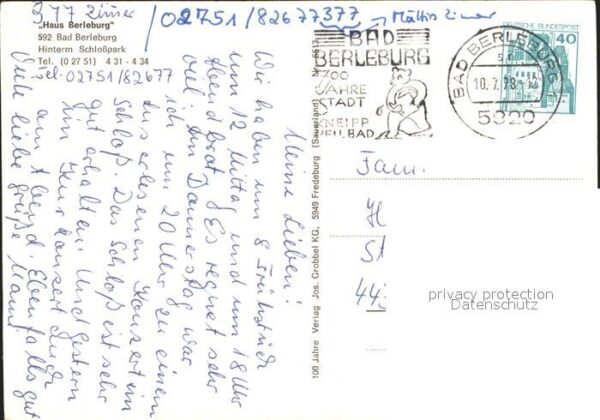 377 Zimer /02751/82677377
Mattis Zimer
„Haus Berleburg"
592 Bad Berleburg
Hinterm Schloßpark
Tel. (0 27 51) 4 31 - 4 34
Tel. 02751/82677
Meine Lieben!
Wir haben um 8 Frühstück
um 12 Mittag und um 18 Uhr
Abendbrot. Es regnet sehr
viel. Am Donnerstag war
ich um 20 Uhr zu einem
auserlesenen Konzert im
Schloß. Das Schloß ist sehr
gut erhalten. Und gestern
ein Kurkonzert auch
am Abend. Ebenfalls gut
Viele liebe Grüße Mama
100 Jahre Verlag Jos. Grobbel KG, 5949 Fredeburg (Sauerland) Nr.
BAD
BERLEBURG
700
JAHRE
STADT
KNEIPP
HEILBAD
BAD BERLEBURG 1
10.7.78
5920
DEUTSCHE BUNDESPOST
40
Fam.
H
St
44
privacy protection
Datenschutz